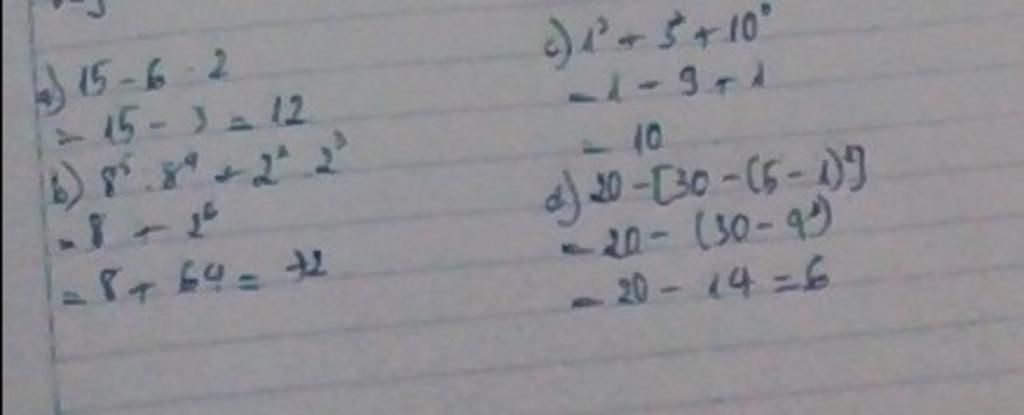 a) 15 - 6 : 2
= 15 - 3 = 12
b) 8⁵ : 8⁴ + 2² · 2³
= 8 + 2⁶
= 8 + 64 = 72
c) 1³ + 3² + 10⁰
= 1 - 9 + 1
= 10
d) 20 - [30 - (5 - 1)²]
= 20 - (30 - 4²)
= 20 - 14 = 6